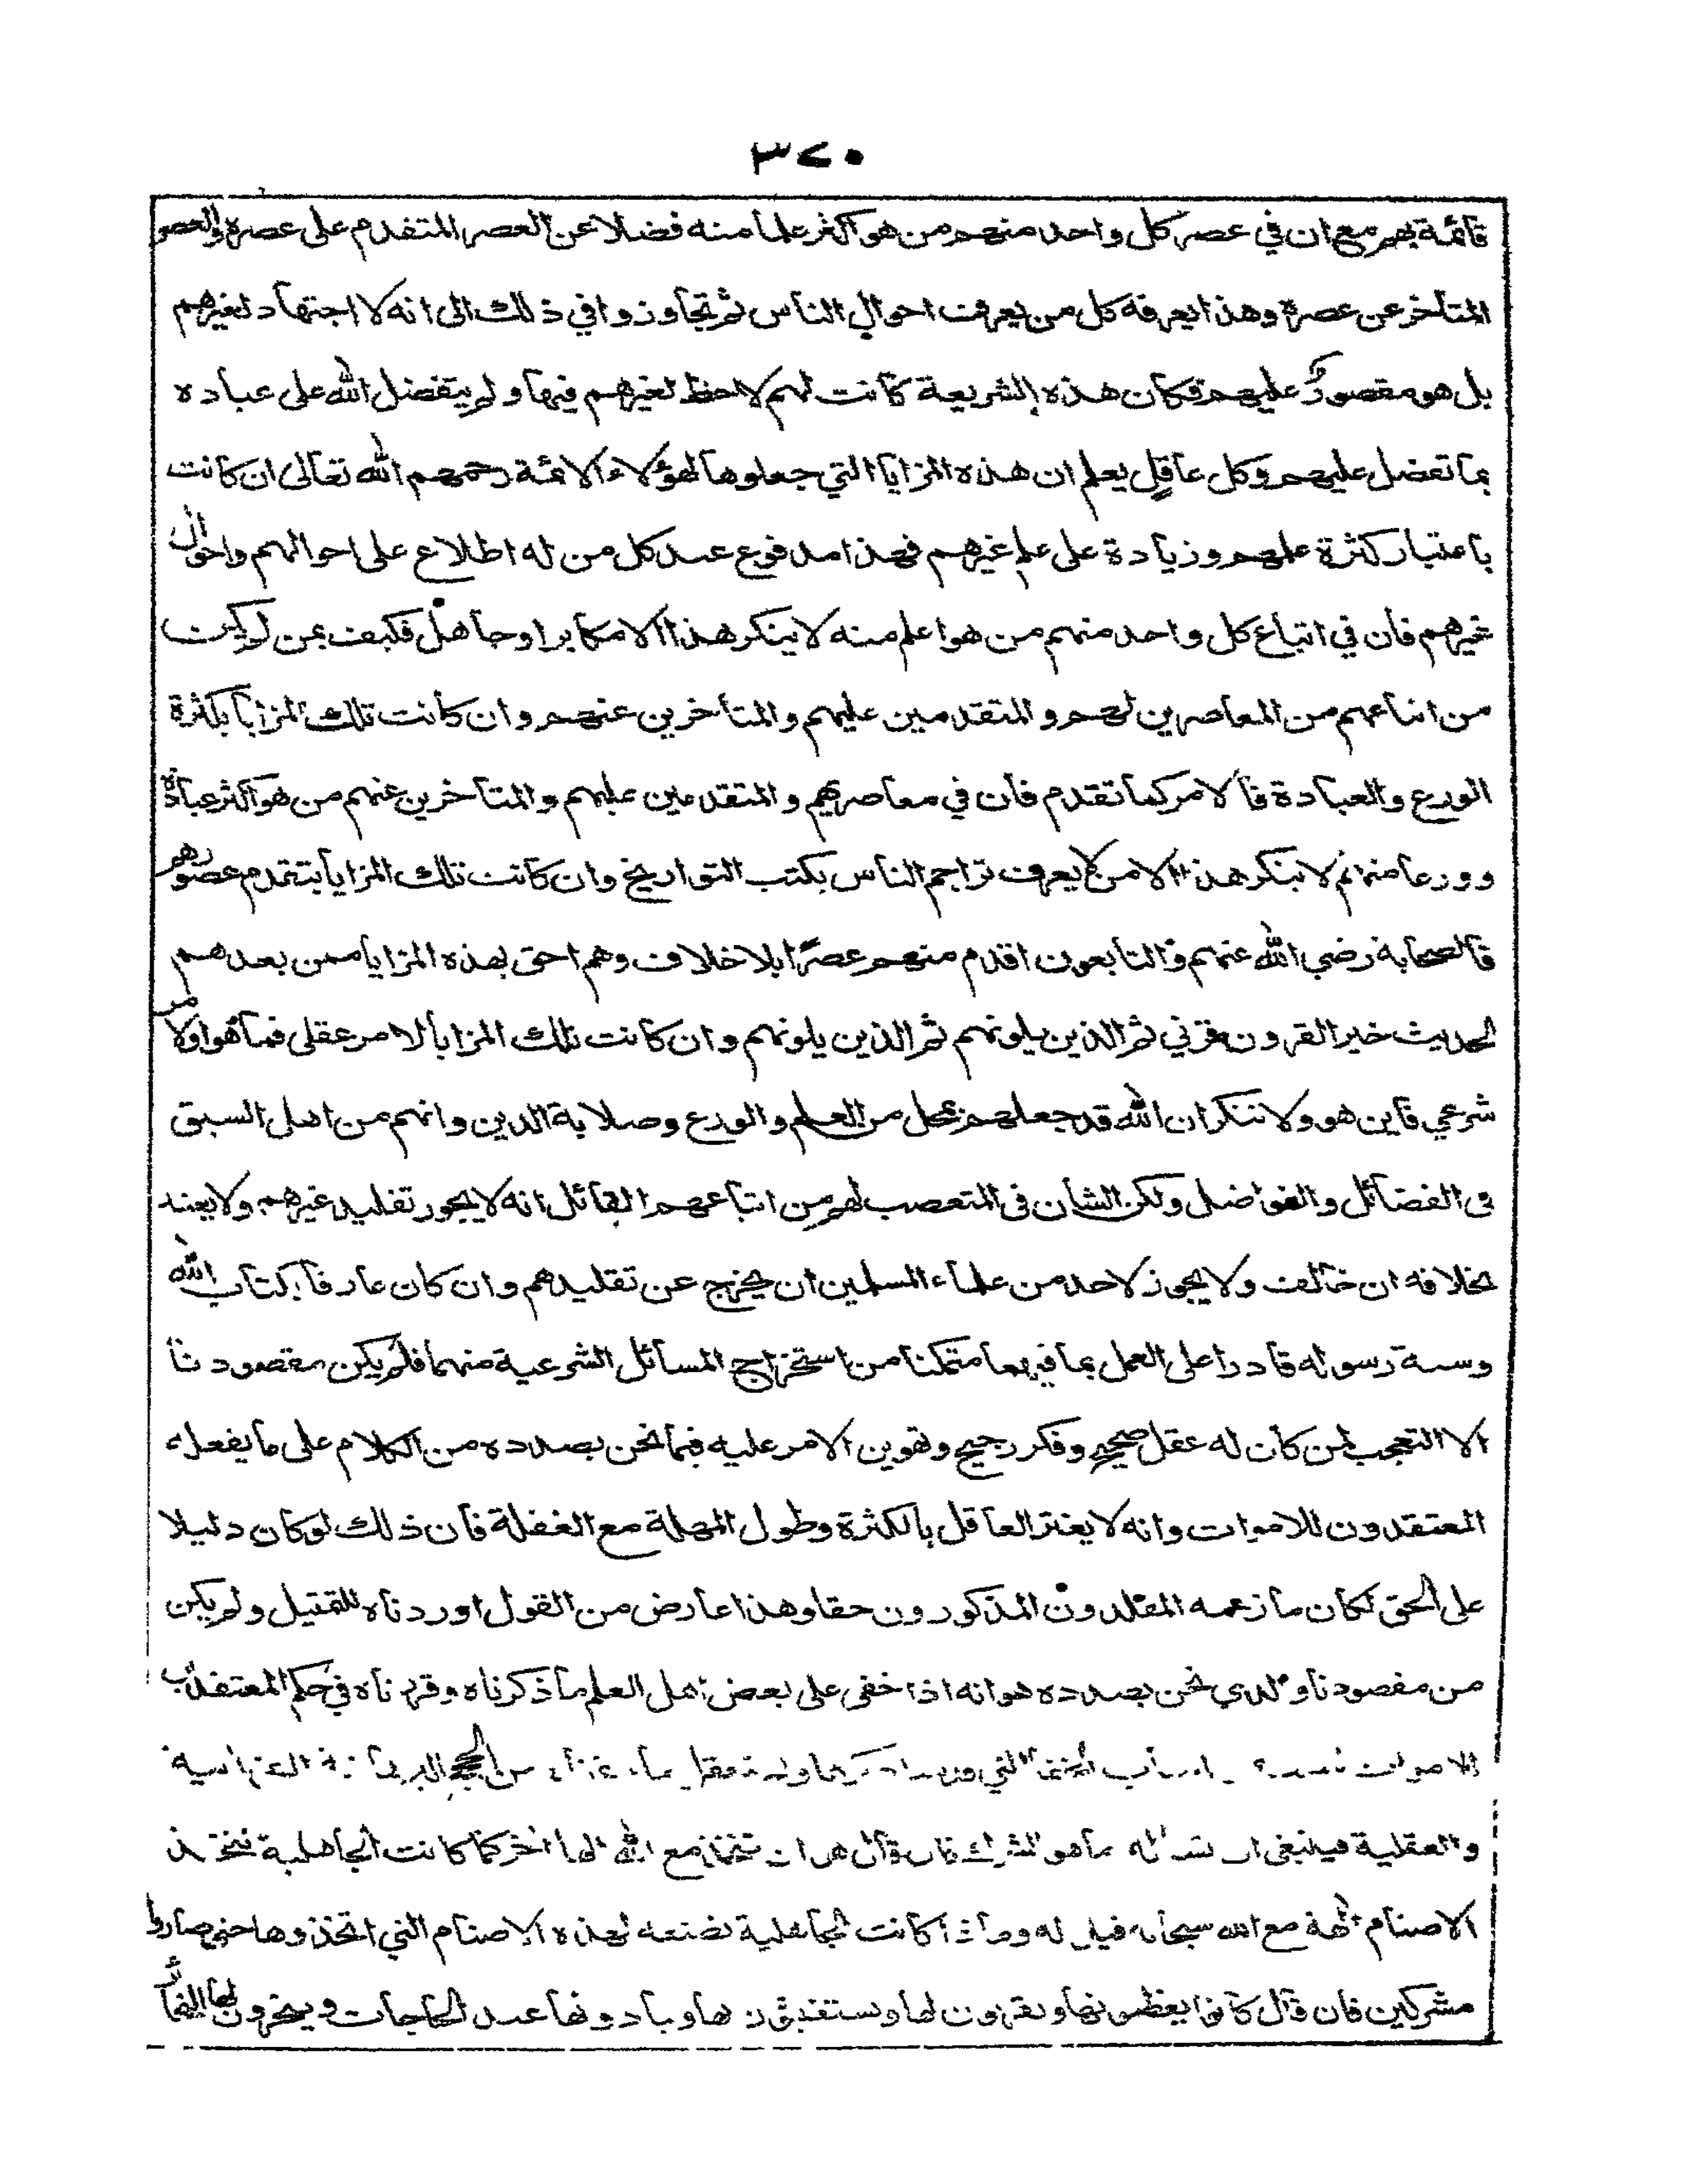 ٣٢٠
قائمة بهم مع ان في عصر كل واحد منهم من هو اكثر علما منه فضلا عن العصر المتقدم على عصره والعصر
المتأخر عن عصره وهذا يعرفه كل من يعرف احوال الناس ثم تجاوزوا في ذلك الى انه لا اجتهاد لغيرهم
بل هو مقصور عليهم فكان هذه الشريعة كانت لهم لاحظ لغيرهم فيها ولم يتفضل الله على عباده
بما تفضل عليهم وكل عاقل يعلم ان هذه المزايا التي جعلوها لهؤلاء الائمة رحمهم الله تعالى ان كانت
باعتبار كثرة علمهم وزيادة على علم غيرهم فهذا مدفوع عند كل من له اطلاع على احوالهم واحوال
غيرهم فان في اتباع كل واحد منهم من هو اعلم منه لا ينكر هذا الا مكابر او جاهل فكيف بمن لم يكن
من اتباعهم من المعاصرين لهم والمتقدمين عليهم والمتأخرين عنهم وان كانت تلك المزايا بكثرة
الورع والعبادة فالامر كما تقدم فان في معاصريهم والمتقدمين عليهم والمتأخرين عنهم من هو اكثر عبادة
وورعا منهم لا ينكر هذا الا من لا يعرف تراجم الناس بكتب التواريخ وان كانت تلك المزايا بتقدم عصورهم
فالصحابة رضي الله عنهم والتابعون اقدم منهم عصرا بلا خلاف وهم احق بهذه المزايا ممن بعدهم
لحديث خير القرون قرني ثم الذين يلونهم ثم الذين يلونهم وان كانت تلك المزايا لامر عقلى فما هو او لامر
شرعي فاين هو ولا ننكر ان الله قد جعلهم بمحل من العلم والورع وصلابة الدين وانهم من اهل السبق
فى الفضائل والفواضل ولكن الشان فى المتعصب لهم من اتباعهم القائل انه لا يجوز تقليد غيرهم ولا يعتد
بخلافه ان خالف ولا يجوز لاحد من علماء المسلمين ان يخرج عن تقليدهم وان كان عارفا بكتاب الله
وسنة رسوله قادرا على العمل بما فيهما متمكنا من استخراج المسائل الشرعية منهما فلم يكن مقصودنا
الا التعجب لمن كان له عقل صحيح وفكر رجيح وتهوين الامر عليه فيما نحن بصدده من الكلام على ما يفعله
المعتقدون للاموات وانه لا يغتر العاقل بالكثرة وطول المهلة مع الغفلة فان ذلك لو كان دليلا
على الحق لكان ما زعمه المقلدون المذكورون حقا وهذا عارض من القول اوردناه للتمثيل ولم يكن
من مقصودنا والذي نحن بصدده هو انه اذا خفى على بعض اهل العلم ما ذكرناه وقررناه في حكم المعتقدين
للاموات التي من الحجج القرآنية
والعقلية فينبغى ان ما هو الشرك فان قال هو ان تتخذ مع الله الها آخر كما كانت الجاهلية تتخذ
الاصنام آلهة مع الله سبحانه قيل له وماذا كانت الجاهلية تصنعه لهذه الاصنام التي اتخذوها حتى صاروا
مشركين فان قال كانوا يعظمونها ويقربون لها ويستغيثون بها وينادونها عند الحاجات وينحرون لها